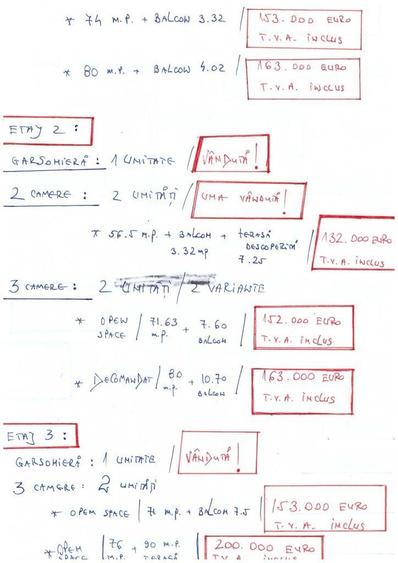 * 74 m.p. + BALCON 3.32 / 153.000 EURO
T.V.A. inclus
* 80 m.p. + BALCON 4.02 / 163.000 EURO
T.V.A. inclus
ETAJ 2 :
GARSONIERĂ : 1 UNITATE / VÂNDUTĂ !
2 CAMERE : 2 UNITĂȚI / UNA VÂNDUTĂ !
* 56.5 m.p. + BALCON + TERASĂ / 132.000 EURO
3.32 mp DESCOPERITĂ
7.25 T.V.A. inclus
3 CAMERE : 2 UNITĂȚI / 2 VARIANTE
* OPEN / 71.63 + 7.60 / 152.000 EURO
SPACE / m.p. BALCON T.V.A. inclus
* DECOMANDAT / 80 + 10.70 / 163.000 EURO
m.p. BALCON T.V.A. inclus
ETAJ 3 :
GARSONIERĂ : 1 UNITATE / VÂNDUTĂ !
3 CAMERE : 2 UNITĂȚI
* OPEN SPACE / 71 m.p. + BALCON 7.5 / 153.000 EURO
T.V.A. inclus
* OPEN / 76 + 90 m.p. / 200.000 EURO
SPACE / m.p. TERASĂ T.V.A. inclus